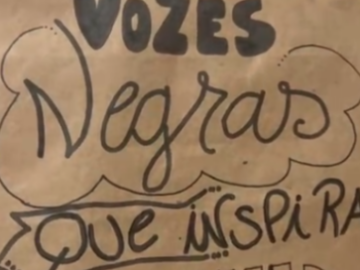 VOZES
Negras
QUE iNSPiRA